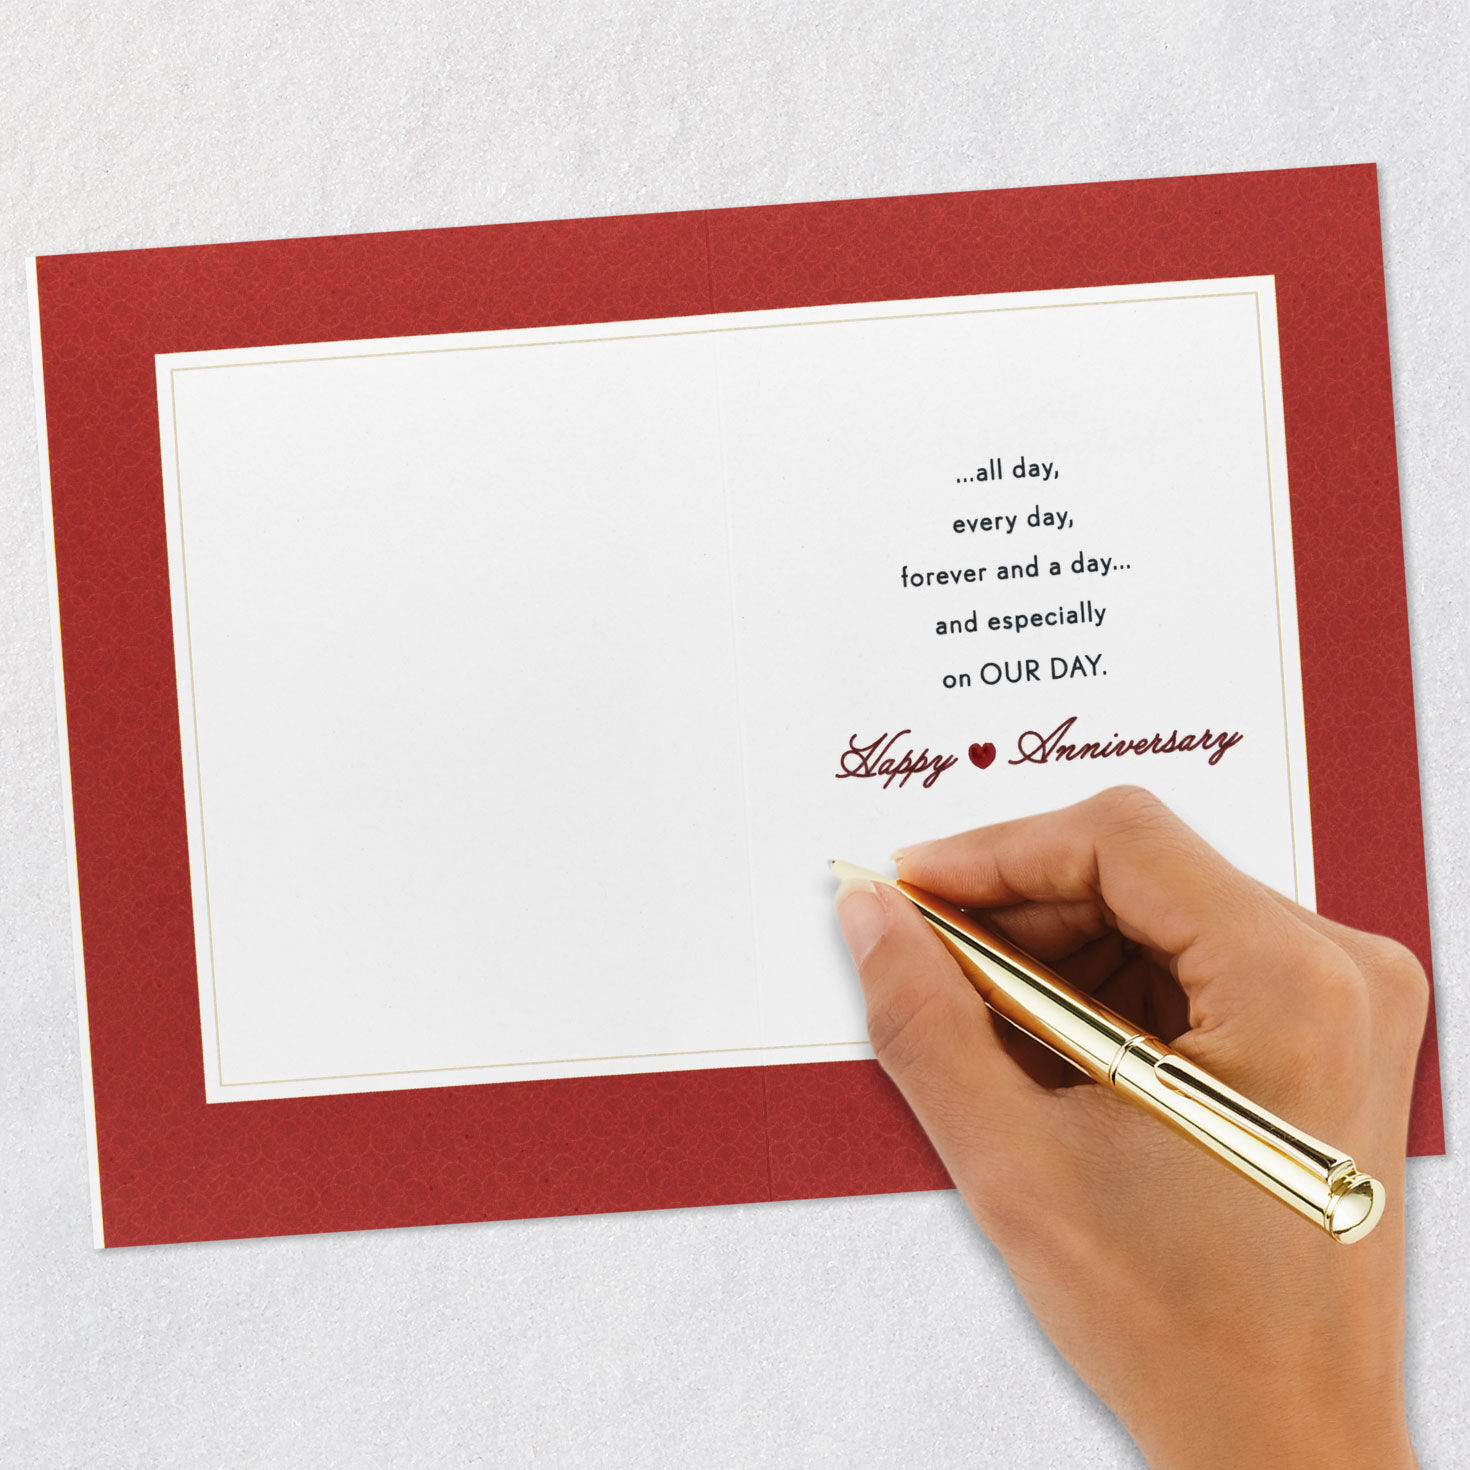 ...all day,
every day,
forever and a day...
and especially
on OUR DAY.
Happy Anniversary